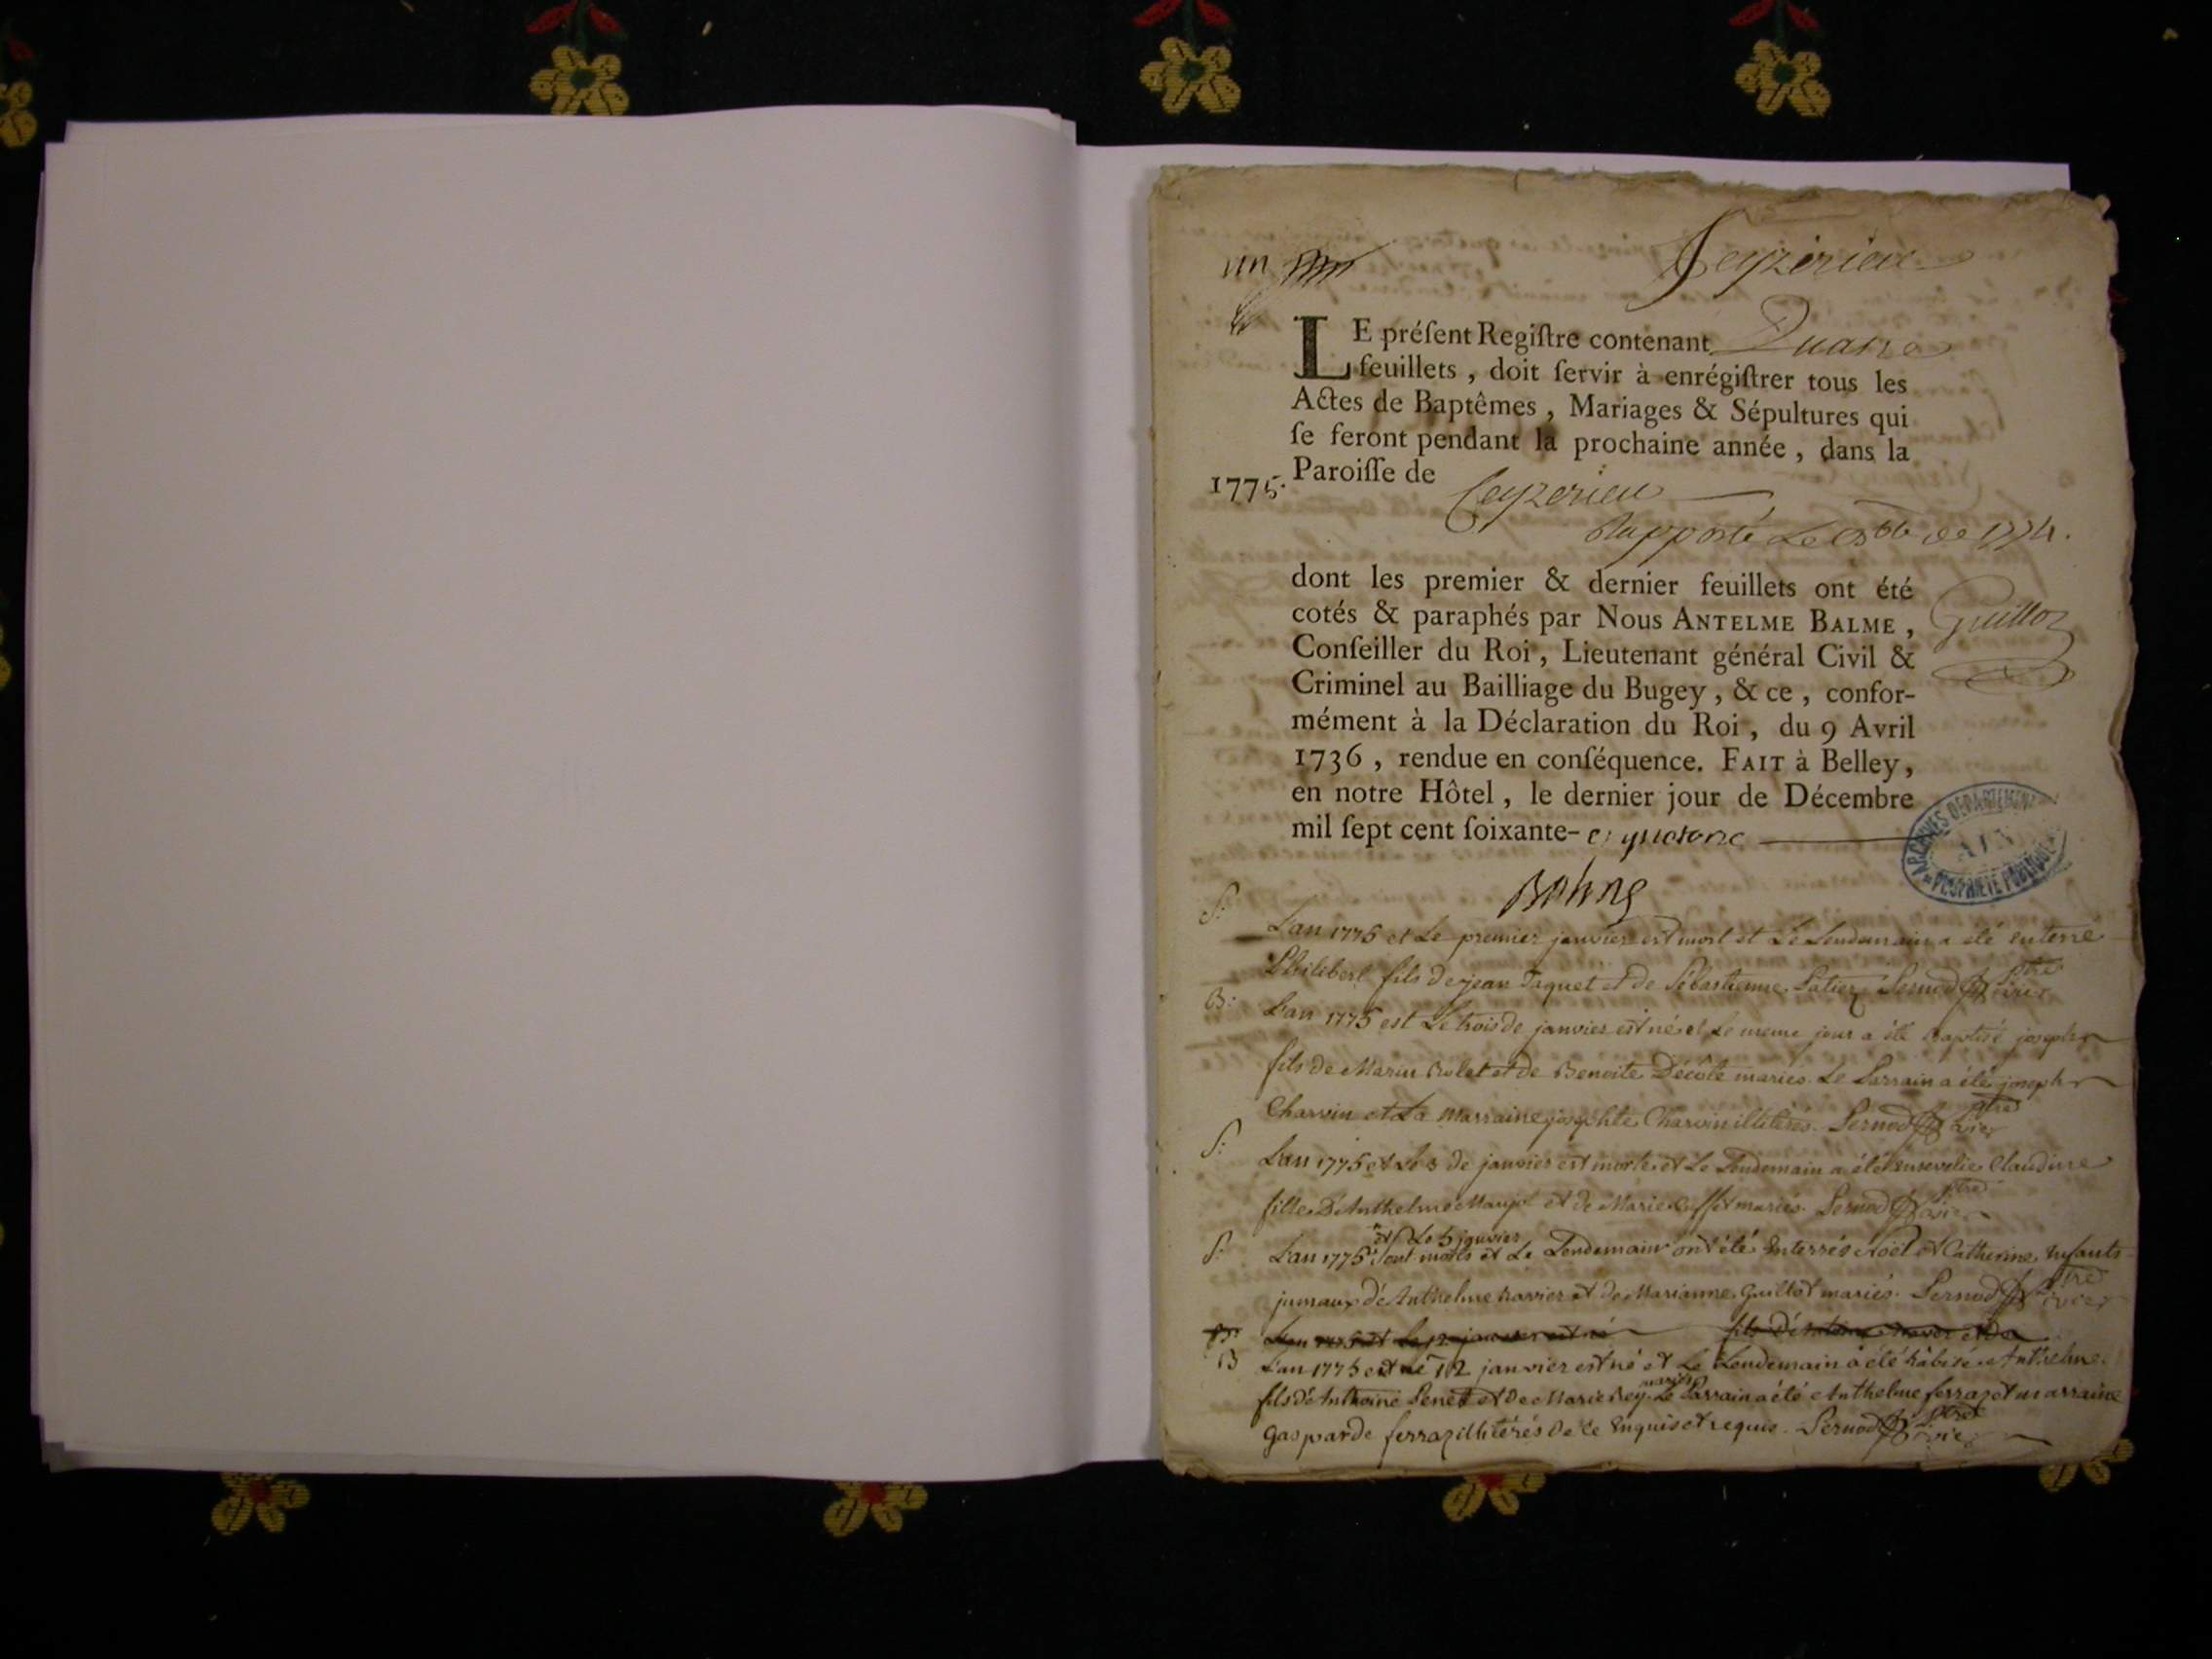 un
Ceyzerieu
LE préſent Regiſtre contenant Quatre
feuillets, doit ſervir à enrégiſtrer tous les
Actes de Baptêmes, Mariages & Sépultures qui
ſe feront pendant la prochaine année, dans la
1775. Paroiſſe de Ceyzerieu
Rapporté Le de 1774.
dont les premier & dernier feuillets ont été
cotés & paraphés par Nous ANTELME BALME,
Conſeiller du Roi, Lieutenant général Civil &
Criminel au Bailliage du Bugey, & ce, confor-
mément à la Déclaration du Roi, du 9 Avril
1736, rendue en conſéquence. FAIT à Belley,
en notre Hôtel, le dernier jour de Décembre
mil ſept cent ſoixante- et quatorze
Guillot
ARCHIVES DEPARTEMENTALES
AIN
PROPRIÉTÉ PUBLIQUE
Balme
S: L'an 1775 et Le premier janvier est mort et Le Lendemain a été enterré
Philibert fils de jean Taquet et de Sébastienne Pernod
B: L'an 1775 est Le trois de janvier est né et Le meme jour a été Baptisé joseph
fils de Marin Rolet et de Benoite Décôte mariés. Le Parrain a été joseph
Charvin et La marraine josephte Charvin illitérés. Pernod
S: L'an 1775 et Le 3 de janvier est morte et Le Lendemain a été ensevelie Claudine
fille D'Anthelme et de Marie mariés. Pernod
S: L'an 1775 et Le 5 janvier sont morts et Le Lendemain ont été Enterrés Noël et Catherine Enfants
jumaux d'Anthelme Ravier et de Marianne Guillot mariés. Pernod
L'an 1775 et Le 12 janvier est né fils
B L'an 1775 est Le 12 janvier est né et Le Lendemain a été Anthelme
fils d'Anthoine Penet et de Marie Rey mariés. Le Parrain a été Anthelme ferraz et marraine
Gasparde ferraz illitérés de ce Enquis et requis. Pernod